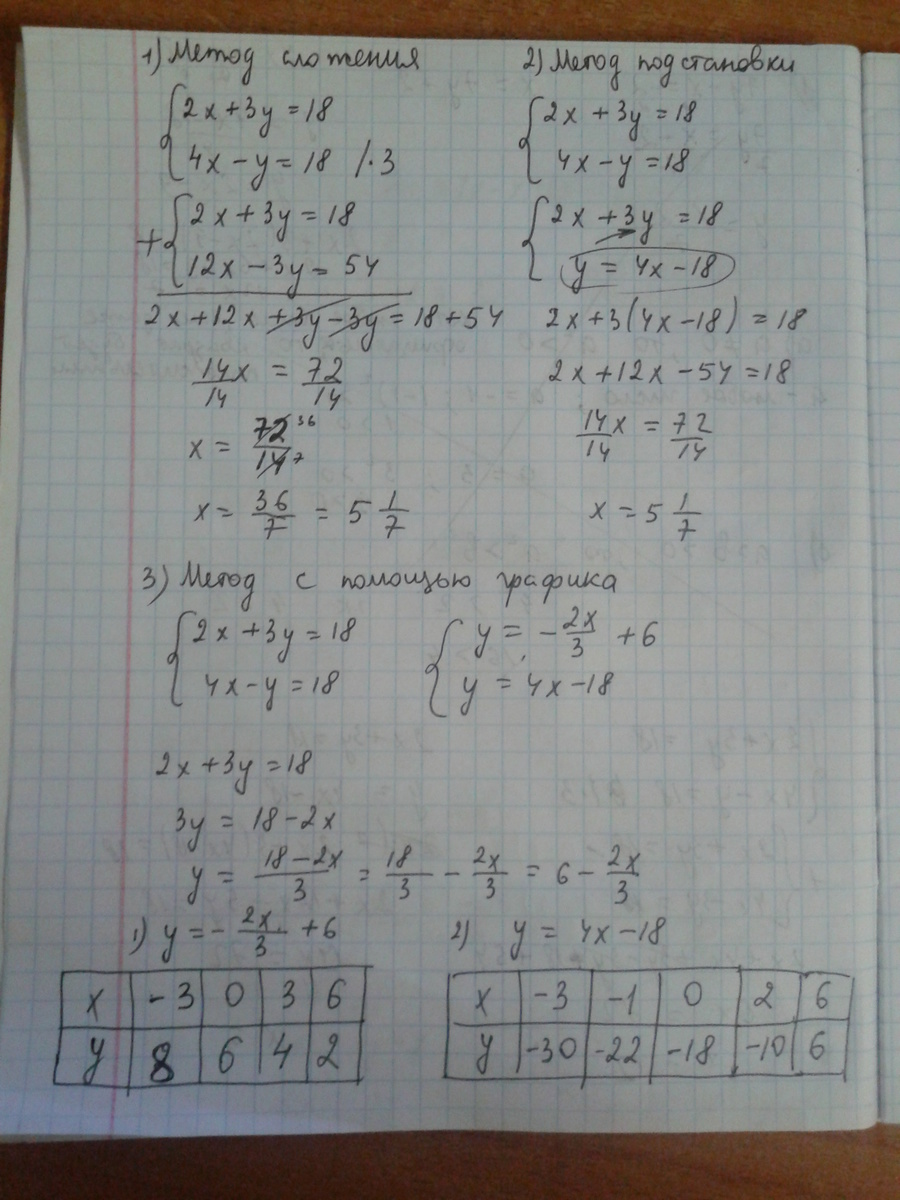 1) Метод сложения
{2x+3y=18
4x-y=18 /·3
+{2x+3y=18
12x-3y=54
2x+12x+3y-3y=18+54
14x/14 = 72/14
x = 72 36/14 7
x = 36/7 = 5 1/7
2) Метод подстановки
{2x+3y=18
4x-y=18
{2x+3y=18
y=4x-18
2x+3(4x-18)=18
2x+12x-54=18
14x/14 = 72/14
x = 5 1/7
3) Метод с помощью графика
{2x+3y=18
4x-y=18
{y = -2x/3 +6
y = 4x-18
2x+3y=18
3y = 18-2x
y = (18-2x)/3 = 18/3 - 2x/3 = 6 - 2x/3
1) y = -2x/3 +6
x -3 0 3 6
y 8 6 4 2
2) y = 4x-18
x -3 -1 0 2 6
y -30 -22 -18 -10 6